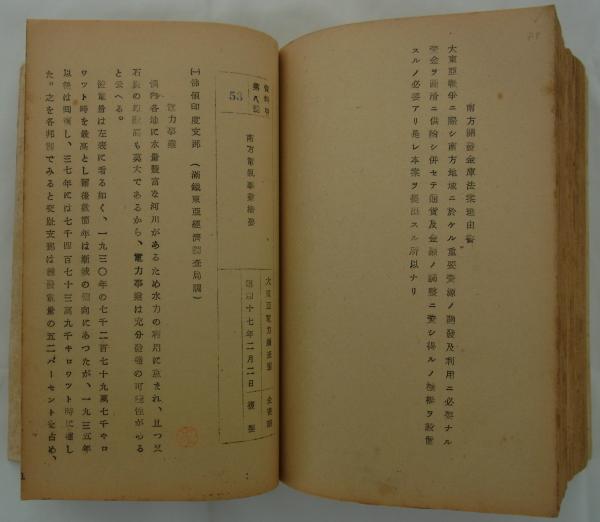 南方開發金庫法案理由書
大東亞戰爭ニ際シ南方地域ニ於ケル重要資源ノ開發及利用ニ必要ナル
資金ヲ圓滑ニ供給シ併セテ通貨及金融ノ調整ニ要シ得ルノ機構ヲ設置
スルノ必要アリ是レ本案ヲ提出スル所以ナリ
資料甲
第八號
53
南方電氣事業
大東亞電力
昭和十七年二月二日
㈠ 佛領印度支那 (滿鐵東亞經濟調査局調)
電力事業
領內各地に水量豐富な河川があるため水力の利用に惠まれ、且つ又
石炭の埋藏高も莫大であるから、電力事業は充分發達の可能性がある
と云へる。
發電量は左表に看る如く、一九三〇年の七千二百七十九萬七千キロ
ワット時を最高とし爾後數箇年は漸減の傾向にあつたが、一九三五年
以後は回復し、三七年には七千四百七十三萬九千キロワット時に達し
た。之を各邦別でみると交趾支那は總發電量の五二パーセントを占め、